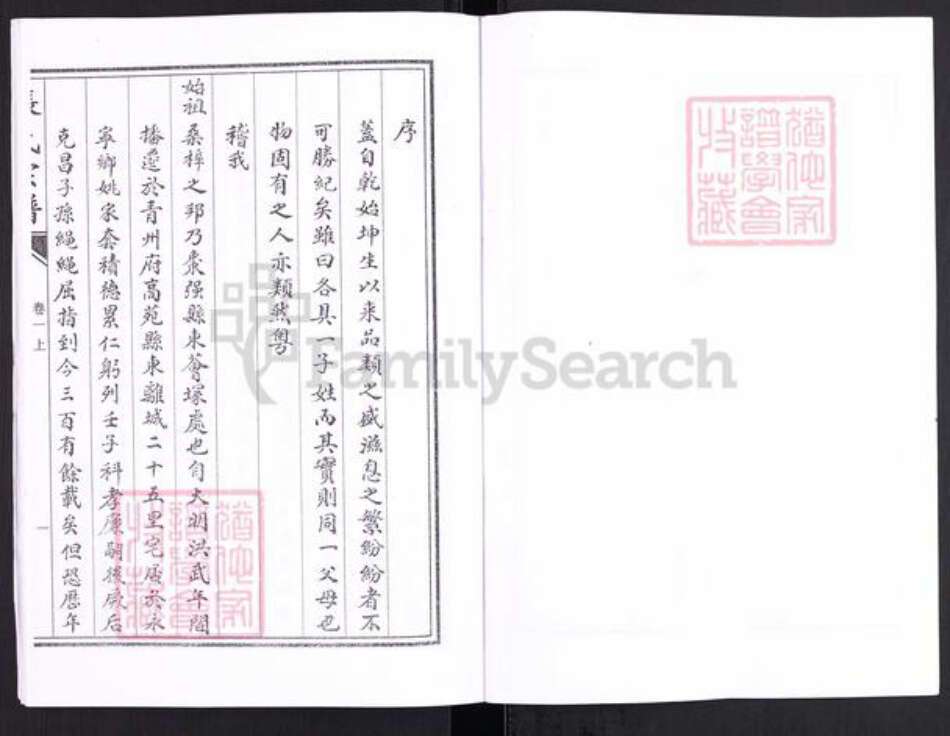 序
蓋自乾始坤生以來品類之盛滋息之繁紛紛者不
可勝紀矣雖曰各具一子姓而其實則同一父母也
物固有之人亦類然粵
稽我
始祖桑梓之邦乃棗强縣東薈塚處也自大明洪武年間
播遷於青州府高苑縣東離城二十五里宅居於永
寧鄉姚家套積德累仁躬列壬子科孝廉嗣後厥后
克昌子孫繩繩屈指到今三百有餘載矣但恐歷年
氏宗譜
卷一上
一
猶他家
譜學會
收藏
猶他家
譜學會
收藏
FamilySearch